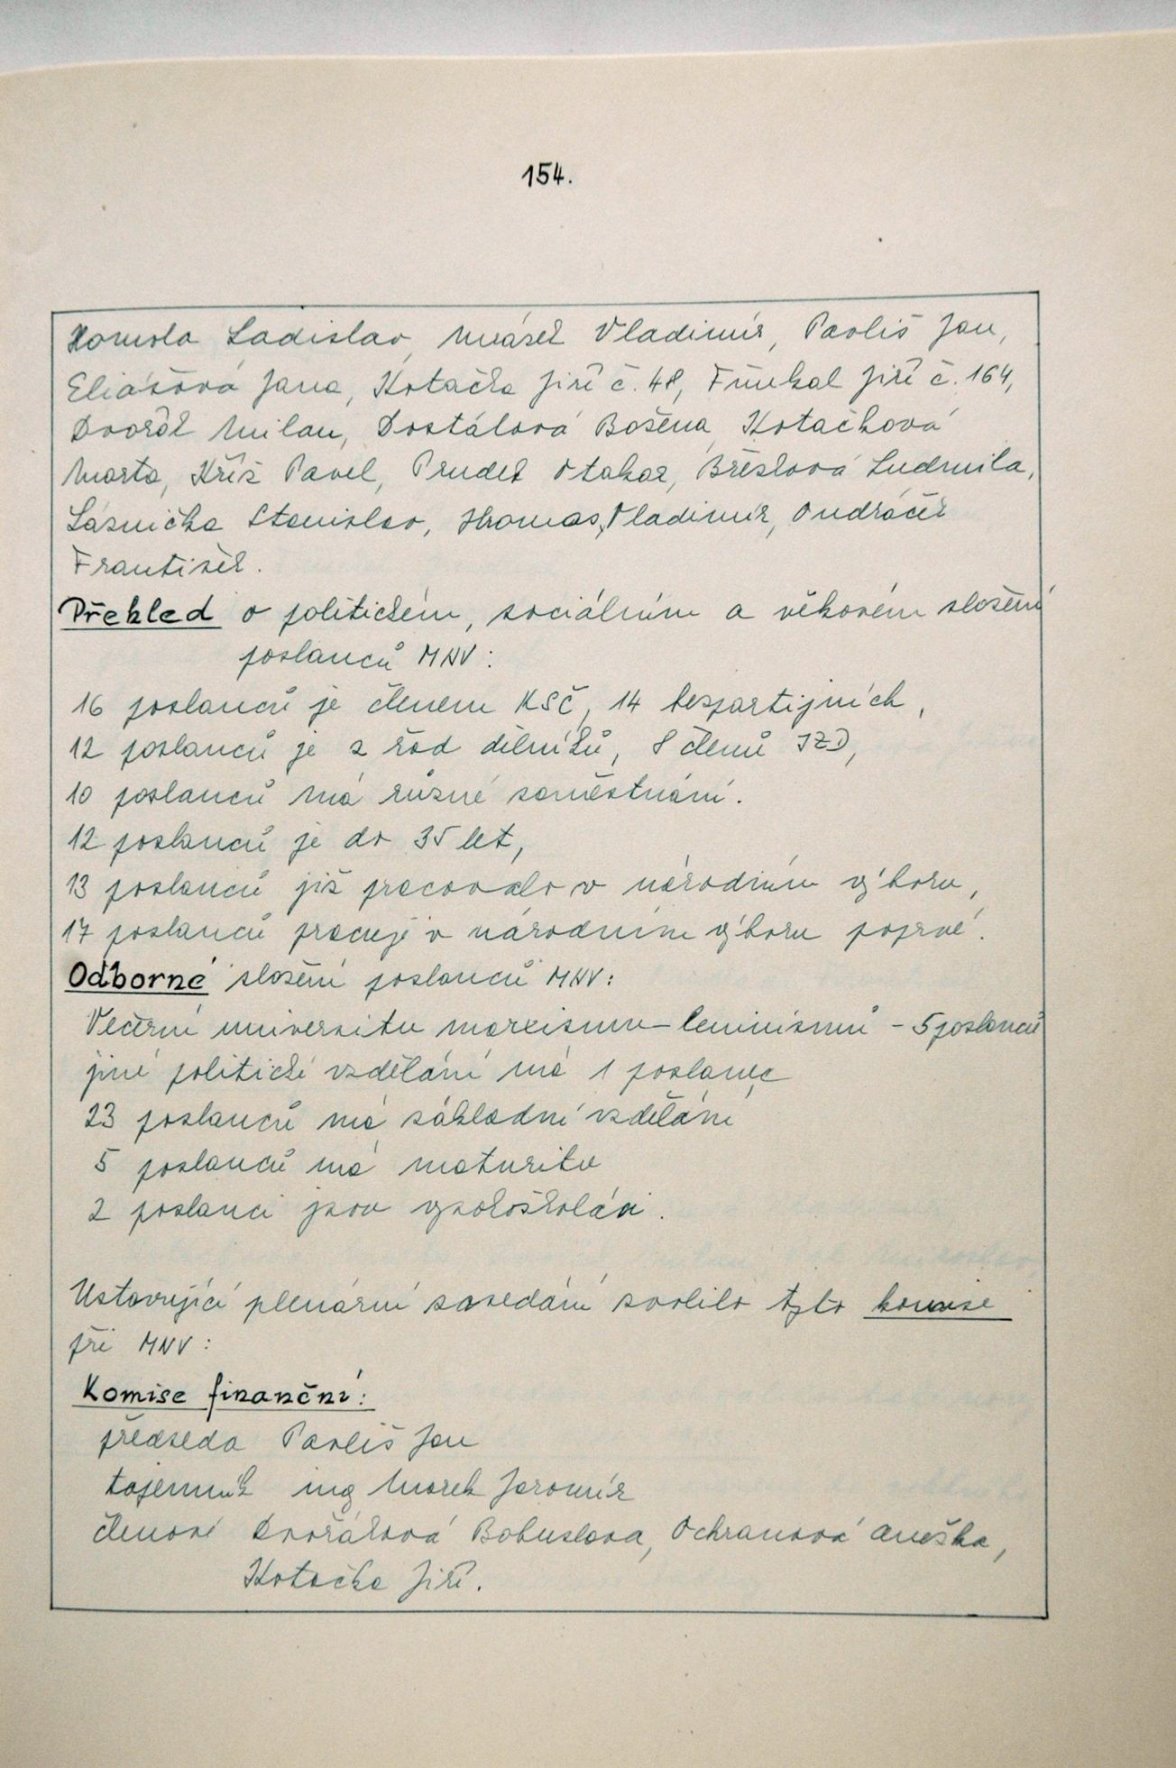 154.
Homola Ladislav, Mrázek Vladimír, Pavliš Jan,
Eliášová Jana, Kotačka Jiří č. 48, Fňukal Jiří č. 164,
Dvořák Milan, Dostálová Božena, Kotačková
Marta, Kříž Pavel, Prudek Otakar, Břesková Ludmila,
Lasnička Stanislav, Thomas Vladimír, Ondráček
František.
Přehled o politickém, sociálním a věkovém složení
poslanců MNV:
16 poslanců je členem KSČ, 14 bezpartijních,
12 poslanců je z řad dělníků, 8 členů JZD,
10 poslanců má různé zaměstnání.
12 poslanců je do 35 let,
13 poslanců již pracovalo v národním výboru,
17 poslanců pracuje v národním výboru poprvé.
Odborné složení poslanců MNV:
Večerní universitu marxismu-leninismu - 5 poslanců
jiné politické vzdělání má 1 poslanec
23 poslanců má základní vzdělání
5 poslanců má maturitu
2 poslanci jsou vysokoškoláci.
Ustavující plenární zasedání zvolilo tyto komise
při MNV:
Komise finanční:
předseda Pavliš Jan
tajemník ing Marek Jaromír
členové Dvořáková Bohuslava, Ochranová Anežka,
Kotačka Jiří.